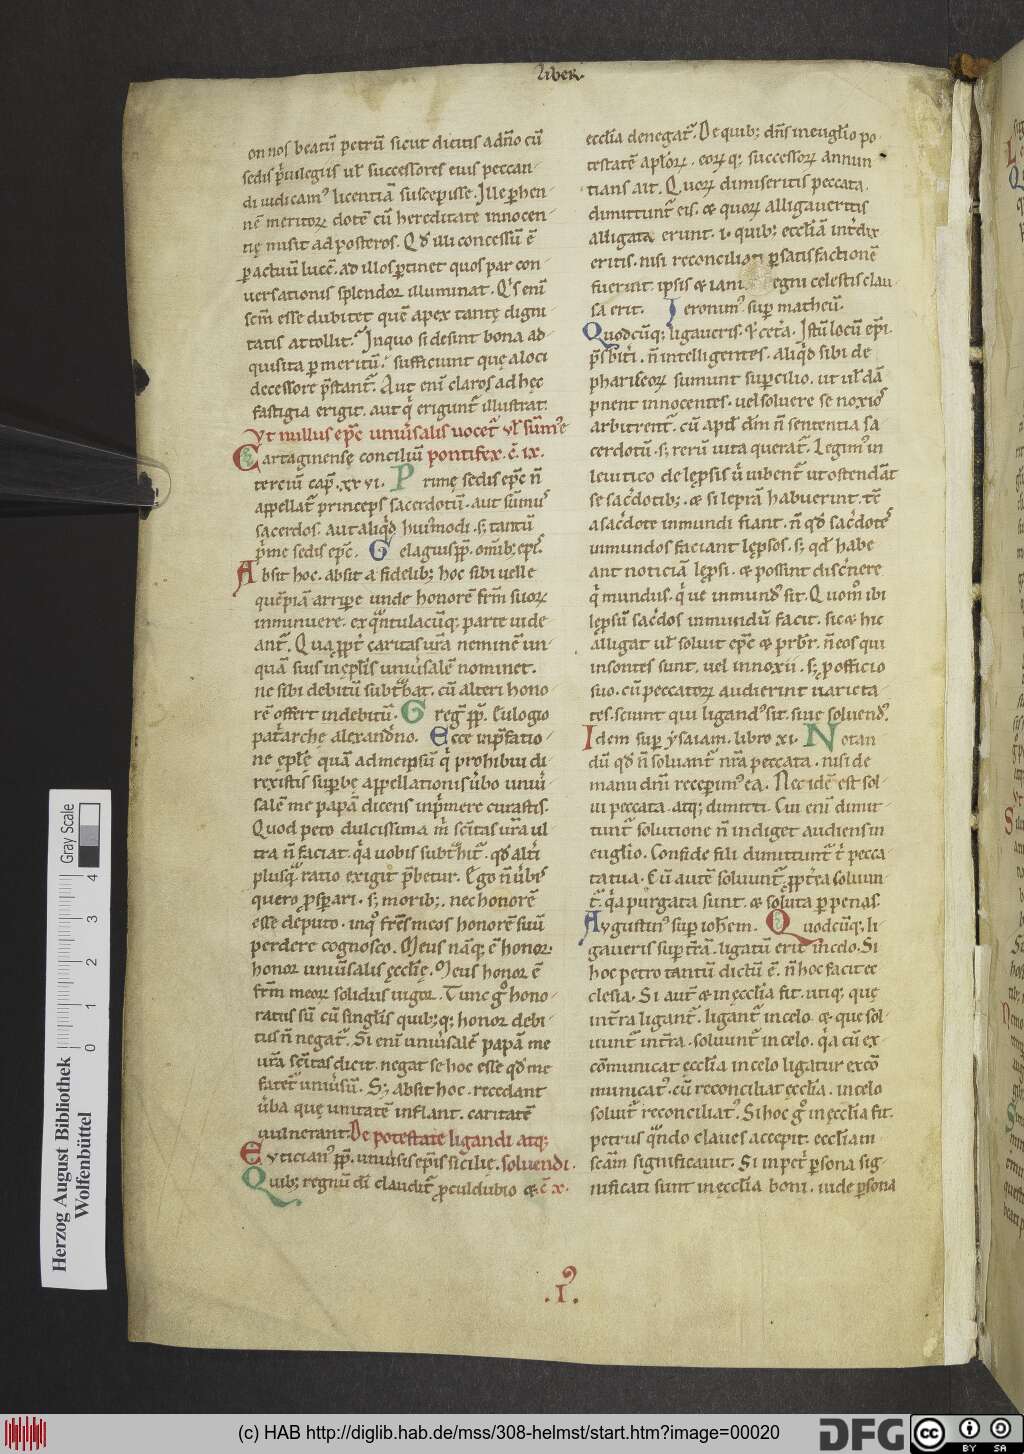 liber.
on nos beatū petrū sicut dicitis a dño cū
sedis p̄uilegiis ul̄ successores eius peccan-
di iudicam' licentiā suscepisse. Ille ꝑhen-
nē meritoꝝ dotē cū hereditate innocen-
tię misit ad posteros. Qd̄ illi concessū ē
ꝑ actuū lucē. ad illos ꝑtinet quos par con-
uersationis splendor illuminat. Q's eni
scm̄ esse dubitet quē apex tantę digni-
tatis attollit. In quo si desint bona ad-
quisita ꝑ meritū. sufficiunt quę a loci
decessore p̄stant'. Aut eni claros ad hęc
fastigia erigit. aut q̄ erigunt' illustrat.
Vt nullus ep̄c uniūsalis uocet' ul̄ sūm'e
Cartaginensę conciliū pontifex. c̄. ix.
terciū cap̄. xxvi. Primę sedis ep̄c n̄
appellat' princeps sacerdotū. aut sūm'
sacerdos. aut aliqd̄ hui'modi. s; tantū
p̄me sedis ep̄c. Gelasius pp̄. omīb; ep̄is.
Absit hoc. absit a fidelib; hoc sibi uelle
quēpiā arripe unde honorē frm̄ suoꝝ
inminuere. ex q̄ntulacūq; parte uide
ant'. Quapp̄t caritas ur̄a neminē un-
quā suis in ep̄lis uniūsalē nominet.
ne sibi debitū subt̄hat. cū alteri hono
rē offert indebitū. Greg̅ pp̄. Eulogio
pat̄arche alexand̄no. Ecce in p̄fatio-
ne ep̄lę quā ad me ipsū q̄ prohibui di
rexistis supbę appellationis ūbo uniū-
salē me papā dicens inp̄mere curastis.
Quod peto dulcissima m̄ scītas ur̄a ul
tra n̄ faciat. q̄a uobis subt̄hit'. qd̄ alt̄i
plusq̄ ratio exigit p̄betur. Ego n̄ ūbis
quero ꝓspari. s; morib;. nec honorē
esse deputo. in quo frēs meos honorē suū
perdere cognosco. Meus nāq; ē honor.
honor uniūsalis ęcclię. Meus honor ē
frm̄ meoꝝ solidus uigor. Tunc g° hono-
ratus sū cū singl̄is quib;q; honor debi-
tus n̄ negat'. Si eni uniūsalē papā me
ur̄a scītas dicit. negat se hoc esse qd̄ me
fatet' uniūsū. S; absit hoc. recedant
ūba quę uanitatē inflant. caritatē
uulnerant. De potestate ligandi atq;
Eutician' pp̄. uniūsis ep̄is sicilię. soluendi.
Quib; regnū dī claudit' ꝓculdubio &. c̄ x.
eccłia denegat'. De quib; dn̄s in euglio po
testatē apl̄oꝝ. eoꝝq; successoꝝ annun
tians ait. Quoꝝ dimiseritis peccata.
dimittunt' eis. & quoꝝ alligaueritis
alligata erunt. i. quib; ecclīā int̄dix
eritis. nisi reconciliati ꝑ satisfactionē
fuerint. ipsis & iani regni celestis clau-
sa erit. Ieronim' sup matheū.
Quodcūq; ligaueris. & cet̄a. Istū locū ep̄i.
p̄sbit̄i. n̄ intelligentes. aliqd̄ sibi de
phariseoꝝ sumunt supcilio. ut ul̄ dā
pnent innocentes. uel soluere se noxios
arbitrent'. cū apd̄ dm̄ n̄ sententia sa
cerdotū. s; rerū uita querat'. Legim' in
leuitico de lępsis ū iubent' ut ostendāt
se sac̄dotib; & si leprā habuerint. tc̄
a sac̄dote inmundi fiant. n̄ qd̄ sac̄dotes
inmundos faciant lępsos. s; qd̄ habe
ant noticiā lępsi. & possint disc̄nere
q̄ mundus. q̄ ue inmund' sit. Quom° ibi
lępsū sac̄dos inmundū facit. sic & hic
alligat ul̄ soluit ep̄c & prbr̄. n̄ eos qui
insontes sunt. uel innoxii. s; ꝓ officio
suo. cū peccatoꝝ audierint uarieta-
tes. sciunt qui ligand' sit. siue soluend'.
Idem sup ysaiam. libro xi. Notan
dū qd̄ n̄ soluant' nr̄a peccata. nisi de
manu dn̄i recepim' ea. Nec idē est sol
ui peccata. atq; dimitti. Cui eni dimit-
tunt' solutione n̄ indiget audiens in
euglio. Confide fili dimittunt' t̄ pecca
ta tua. Cū autē soluunt'. ꝓpt̄ea soluun
t'. q̄a purgata sunt. & soluta ꝑ penas.
Augustin' sup ioh̄em. Quodcūq; li
gaueris sup t̄rā. ligatū erit in celo. Si
hoc petro tantū dictū ē. n̄ hoc facit ec
clesia. Si aut' & in ęccl̄ia fit. utiq; quę
in t̄ra ligant'. ligant' in celo. & que sol-
uunt' in t̄ra. soluunt' in celo. q̄a cū ex-
cōmunicat ecclīa in celo ligatur excō
municat'. cū reconciliat ęccl̄ia. in celo
soluit' reconciliat'. Si hoc g° in ęccl̄ia fit.
petrus q̄ndo claues accepit. eccliam
scām significauit. Si in pet̄ psona sig-
nificati sunt in ęccl̄ia boni. iude psona
.I.
Herzog August Bibliothek
Wolfenbüttel
Gray Scale
0 1 2 3 4
(c) HAB http://diglib.hab.de/mss/308-helmst/start.htm?image=00020
DFG
cc BY SA